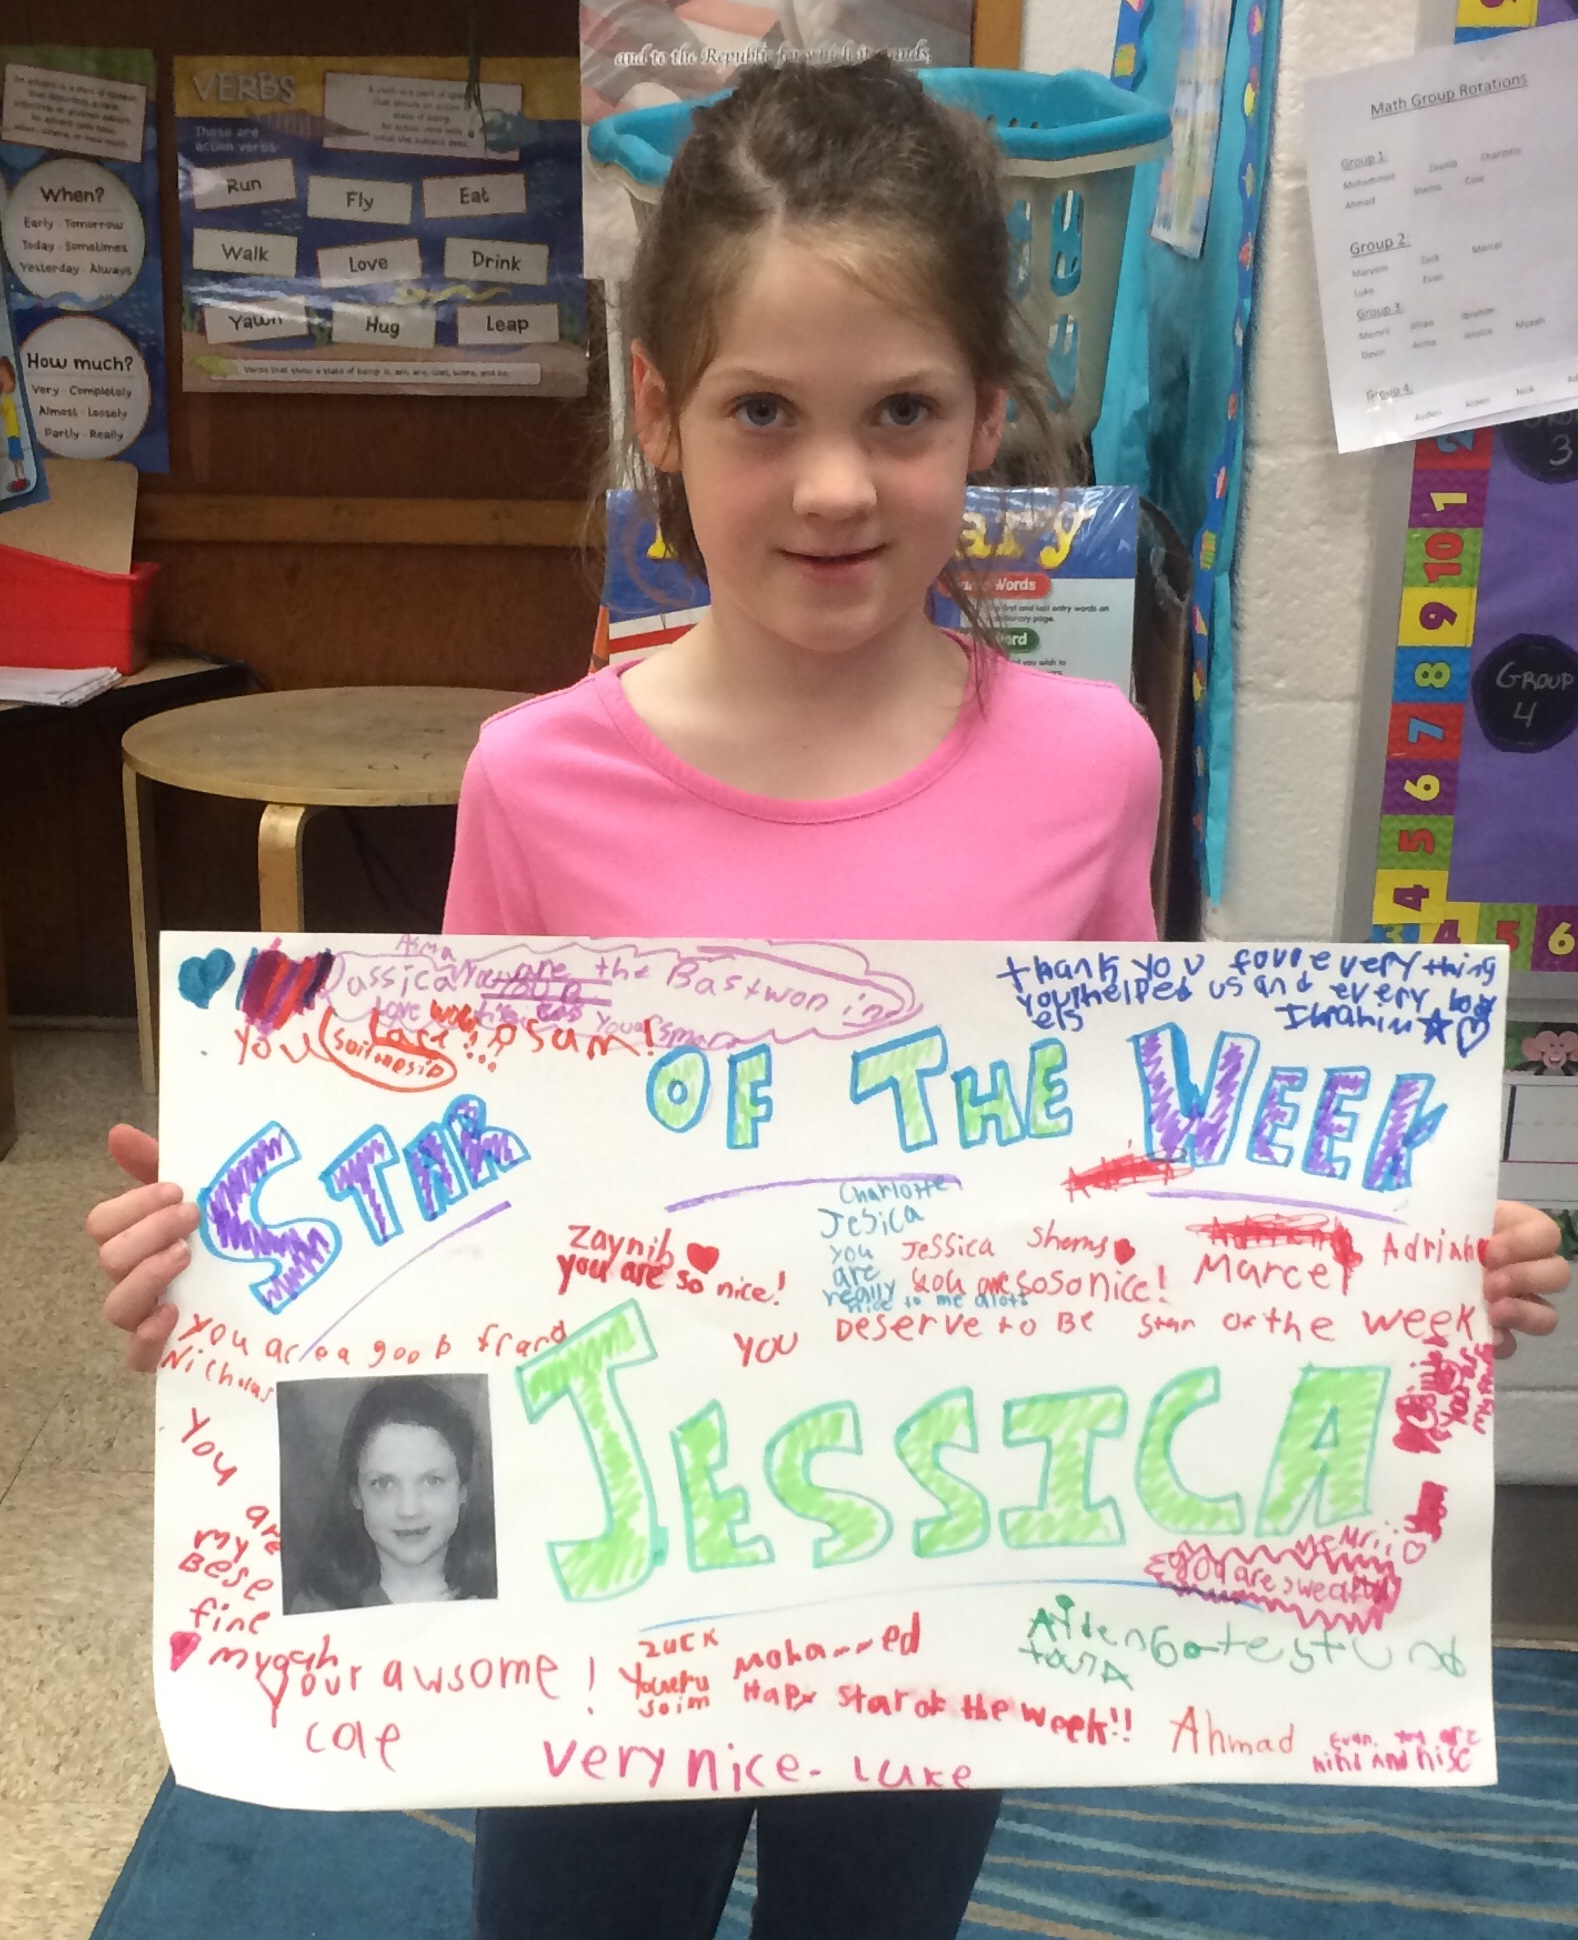 and to the Republic for which it stands,
VERBS
These are
action verbs
Run
Fly
Eat
Walk
Love
Drink
Yawn
Hug
Leap
When?
Early · Tomorrow
Today · Sometimes
Yesterday · Always
How much?
Very · Completely
Almost · Loosely
Partly · Really
Math Group Rotations
Group 1:
Mohammed
Charlotte
Ahmad
Shems
Cole
Group 2:
Maryam
Zack
Marcel
Luke
Evan
Group 3:
Ibrahim
Devin
Asma
Jessica
Myqah
Group 4:
Ayden
Aiden
Nick
Words
first and last entry words on
GROUP
4
3
1
10
9
8
7
6
5
4
3 4 5 6
Asma
Jassica You are the Bastwon in
You
osam!
thank you foure every thing
you helped us and every body
els
Ibrahim
STAR OF THE WEEK
Zaynib
you are so nice!
Charlotte
Jesica
you
are
really
nice to me alot
Jessica Shems
you are sosonice!
Marcel
Adriana
You Deserve to Be Star of the week
You are a goob frand
Nicholas
JESSICA
You
are
my
Bese
fine
myqah
Memrii
you are sweat
Your awsome!
cole
zuck
Mohammed
Hapy Star of the week!!
very nice- Luke
Ahmad
Evan. you are
kind And nise